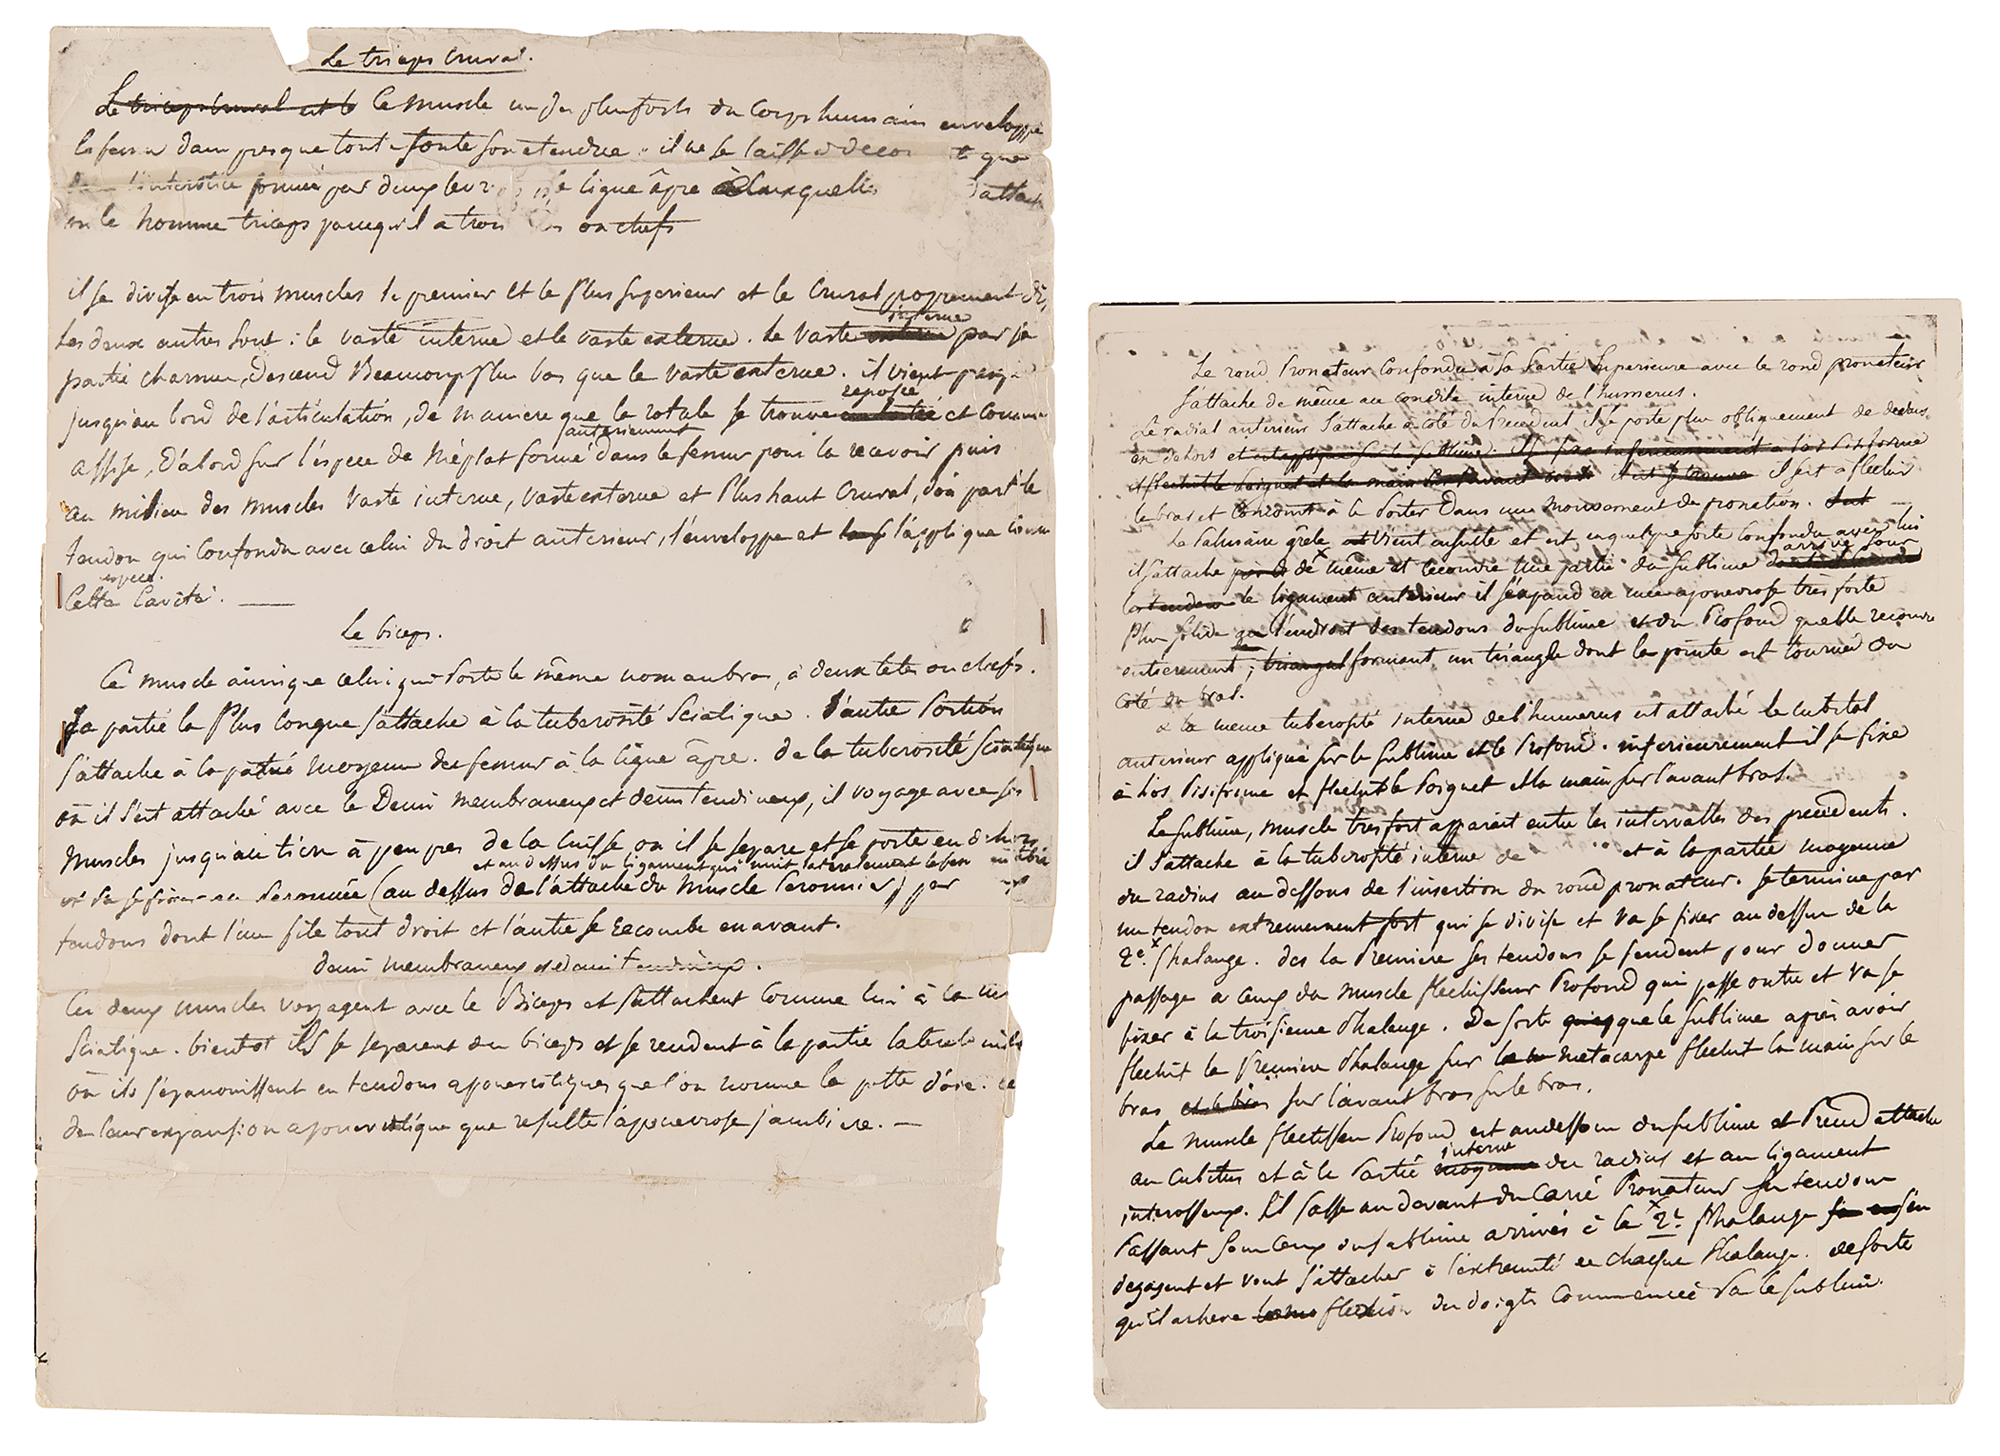 Le triceps crural.
Le triceps crural est le Ce muscle un des plus forts du corps humain enveloppe
le femur dans presque toute son etendue il ne se laisse que
l'interstice formé par deux ligne âpre à laquelle
on le nomme triceps parcequ'il a trois ou chefs
il se divise en trois muscles le premier et le plus superieur est le crural proprement dit,
Les deux autres sont : le vaste interne et le vaste externe. Le vaste interne par sa
partie charnue, descend Beaucoup plus bas que le vaste externe. il vient presque
jusqu'au bord de l'articulation, de maniere que la rotule se trouve reposée et comme
assise, d'abord sur l'espece de méplat formé anterieurement dans le femur pour la recevoir puis
au milieu des muscles vaste interne, vaste externe et plus haut crural, d'où part le
tendon qui confondu avec celui du droit anterieur, l'enveloppe et l'applique comme
Cette espece Cavité.
Le biceps.
Ce muscle ainsi que celui qui porte le même nom au bras, a deux têtes ou chefs.
La partie la plus longue s'attache à la tuberosité sciatique. L'autre portion
s'attache à la partie moyenne du femur à la ligne âpre. de la tuberosité sciatique
où il s'est attaché avec le Demi membraneux et demi tendineux, il voyage avec ses
muscles jusqu'au tiers à peu près de la cuisse où il se separe et se porte en dehors
et au dessus du ligament qui unit lateralement le
et va se fixer au Peronnée (au dessus de l'attache du muscle Peronnier) par
tendons dont l'un file tout droit et l'autre se recourbe en avant.
demi membraneux et demi tendineux.
Ces deux muscles voyagent avec le Biceps et s'attachent comme lui à la
sciatique. bientot ils se separent du biceps et se rendent à la partie laterale
où ils s'épanouissent en tendons aponevrotiques que l'on nomme la patte d'oie.
de leur expansion aponevrotique que résulte l'aponevrose jambiere.
Le rond Pronateur confondu à sa Partie superieure avec le rond pronateur
s'attache de même au condile interne de l'humerus.
Le radial anterieur s'attache à coté du Precedent il se porte plus obliquement de dedans
en dehors il sert a flechir
le bras et concourt à le Porter Dans un mouvement de pronation.
Le Palmaire grêle vient ensuite et est en quelque sorte confondu avec lui
il s'attache de même et recouvre une partie du sublime arrivé pour
le ligament anterieur il s'épand en une aponevrose très forte
Plus solide que l'endroit des tendons du sublime et du Profond qu'elle recouvre
entierement; formant un triangle dont la pointe est tournée du
coté du bras.
à la meme tuberosité interne de l'humerus est attaché le cubital
anterieur appliqué sur le sublime et le Profond. inferieurement il se fixe
à l'os Pisiforme et flechit le Poignet et la main sur l'avant bras.
Le sublime, muscle tres fort apparait entre les intervalles des precedents.
il s'attache à la tuberosité interne de et à la partie moyenne
du radius au dessous de l'insertion du rond pronateur. se termine par
un tendon extremement fort qui se divise et va se fixer au dessus de la
2e. Phalange. des la Premiere ses tendons se fendent pour donner
passage a ceux du muscle flechisseur Profond qui passe outre et va se
fixer à la troisieme Phalange. De sorte que le sublime après avoir
flechit la Premiere Phalange sur le metacarpe flechit la main sur le
bras et le bras sur l'avant bras sur le bras.
Le muscle flechisseur Profond est au dessous du sublime et Prend attache
au cubitus et à la Partie interne du radius et au ligament
interosseux. Il Passe au devant du Carré Pronateur ses tendons
Passant sous ceux du sublime arrivés à la 2e. Phalange s'en
degagent et vont s'attacher à l'extremité de chaque Phalange. de sorte
qu'il acheve flexion des doigts Commencée Par le sublime.